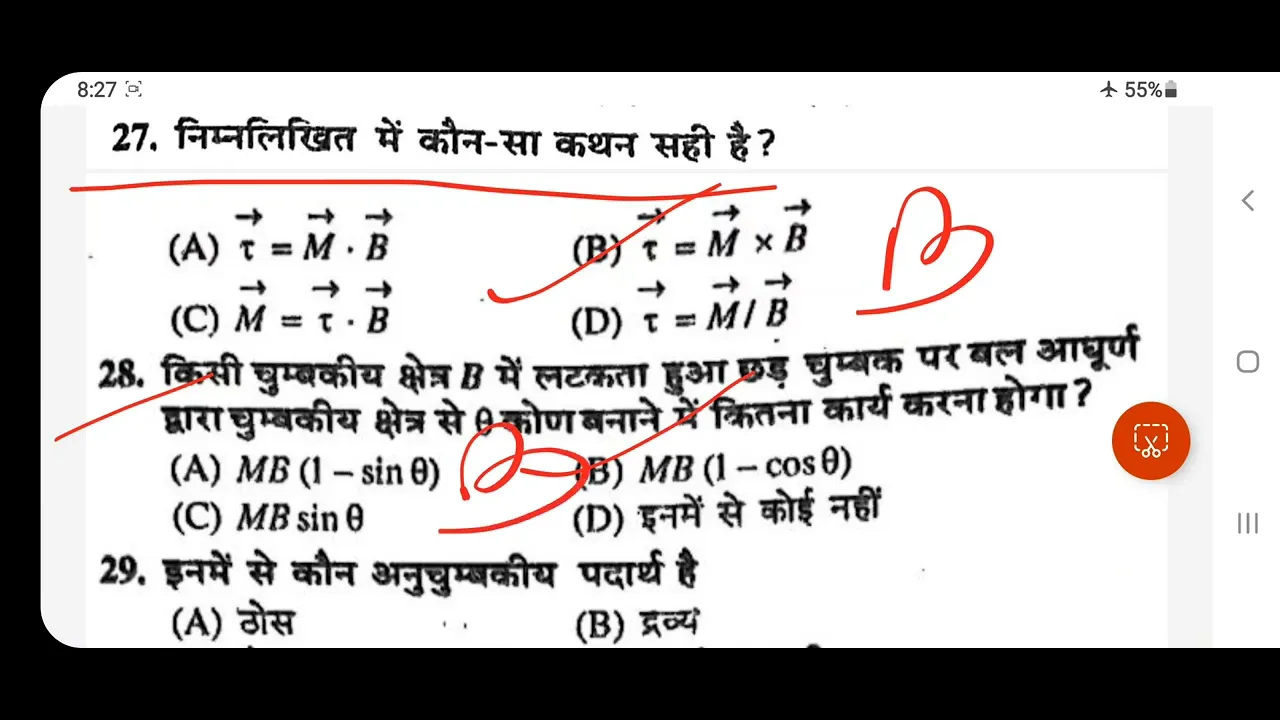 8:27 55%
27. निम्नलिखित में कौन-सा कथन सही है ?
(A) τ⃗ = M⃗ · B⃗ (B) τ⃗ = M⃗ × B⃗
B
(C) M⃗ = τ⃗ · B⃗ (D) τ⃗ = M⃗ / B⃗
28. किसी चुम्बकीय क्षेत्र B में लटकता हुआ छड़ चुम्बक पर बल आघूर्ण
द्वारा चुम्बकीय क्षेत्र से θ कोण बनाने में कितना कार्य करना होगा ?
(A) MB (1 – sin θ) (B) MB (1 – cos θ)
B
(C) MB sin θ (D) इनमें से कोई नहीं
29. इनमें से कौन अनुचुम्बकीय पदार्थ है
(A) ठोस (B) द्रव्य